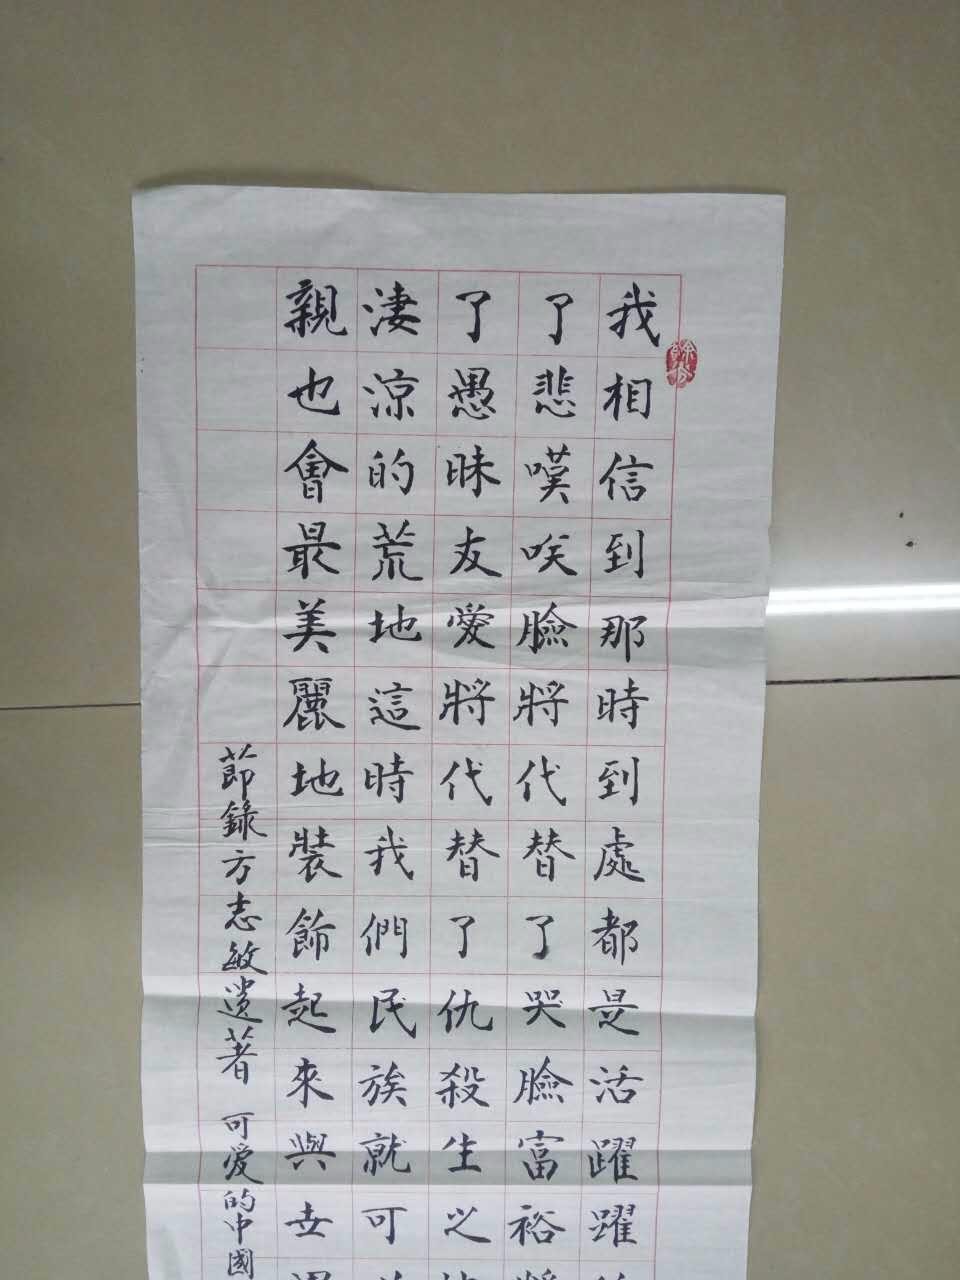 我相信到那時到處都是活躍躍
了悲嘆唉臉將代替了哭臉富裕
了愚昧友愛將代替了仇殺生之
淒涼的荒地這時我們民族就可
親也會最美麗地裝飾起來與世
節錄方志敏遺著 可愛的中國